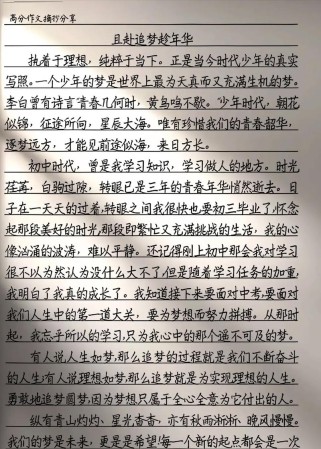 高分作文摘抄分享
且赴追梦趁年华
执着于理想，纯粹于当下。正是当今时代少年的真实
写照。一个少年的梦是世界上最为天真而又充满生机的梦。
李白曾有诗言青春几何时，黄鸟鸣不歇。少年时代，朝花
似锦，征途所向，星辰大海。唯有珍惜我们的青春韶华，
逐梦远方，才能见前途似海，来日方长。
初中时代，曾是我学习知识，学习做人的地方。时光
荏苒，白驹过隙，转眼已是三年的青春年华悄然逝去。日
子在一天天的过着，转眼之间我很快也要初三毕业了，怀念
起那段美好的时光，那段即繁忙又充满挑战的生活，我的心
像汹涌的波涛，难以平静。还记得刚上初中那会我对学习
很不以为然认为没什么大不了，但是随着学习任务的加重，
我明白了我真的成长了。我知道接下来要面对中考，要面对
我们人生中的第一道大关，要为梦想而努力拼搏。从那时
起，我忘乎所以的学习，只为我心中的那个遥不可及的梦。
有人说人生如梦，那么追梦的过程就是我们不断奋斗
的人生；有人说理想如梦，那么追梦就是为实现理想的人生。
勇敢地追梦圆梦，因为梦想只属于全心全意为它付出的人。
纵有青山灼灼、星光杳杳，亦有秋雨淅淅、晚风慢慢。
我们的梦是未来，更是是希望！每一个新的起点都会是一次